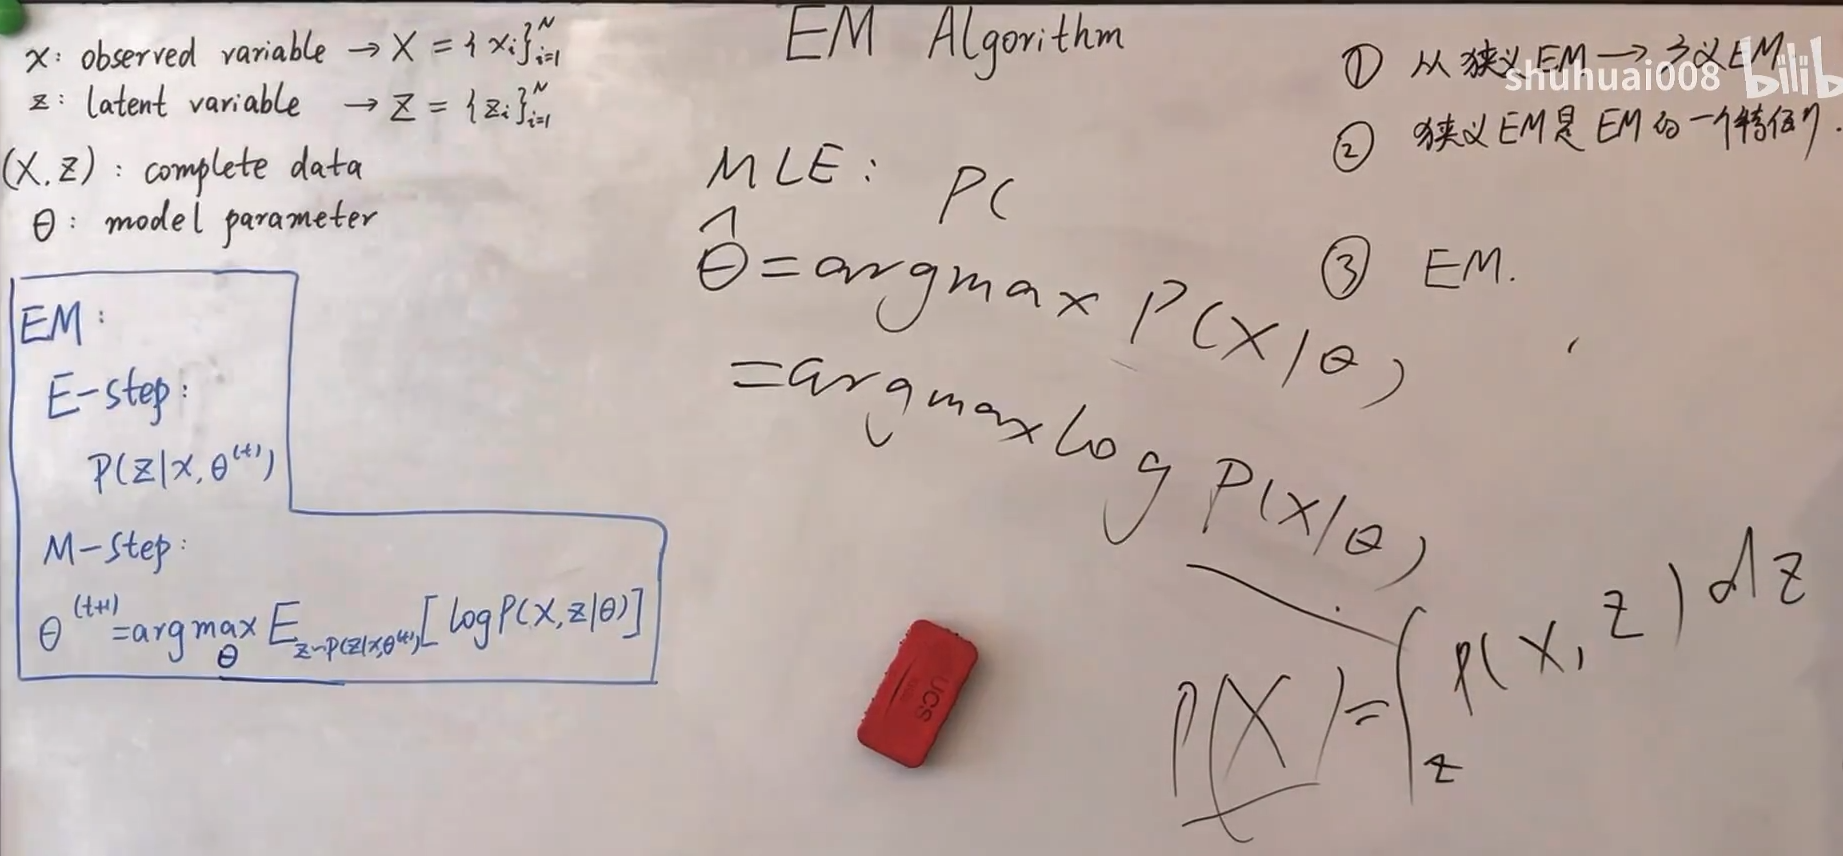 EM Algorithm
x: observed variable → X = {xᵢ}ᵢ₌₁ᴺ
z: latent variable → Z = {zᵢ}ᵢ₌₁ᴺ
(X, Z): complete data
θ: model parameter
EM:
E-step:
P(Z|X, θ⁽ᵗ⁾)
M-step:
θ⁽ᵗ⁺¹⁾ = argmax_θ E_{Z~P(Z|X,θ⁽ᵗ⁾)} [log P(X, Z|θ)]
MLE: P(
θ̂ = argmax P(X|θ)
= argmax log P(X|θ)
P(X) = ∫_z P(X, Z) dz
① 从狭义EM → 广义EM
② 狭义EM是EM的一个特例.
③ EM.
shuhuai008 bilib
UCS